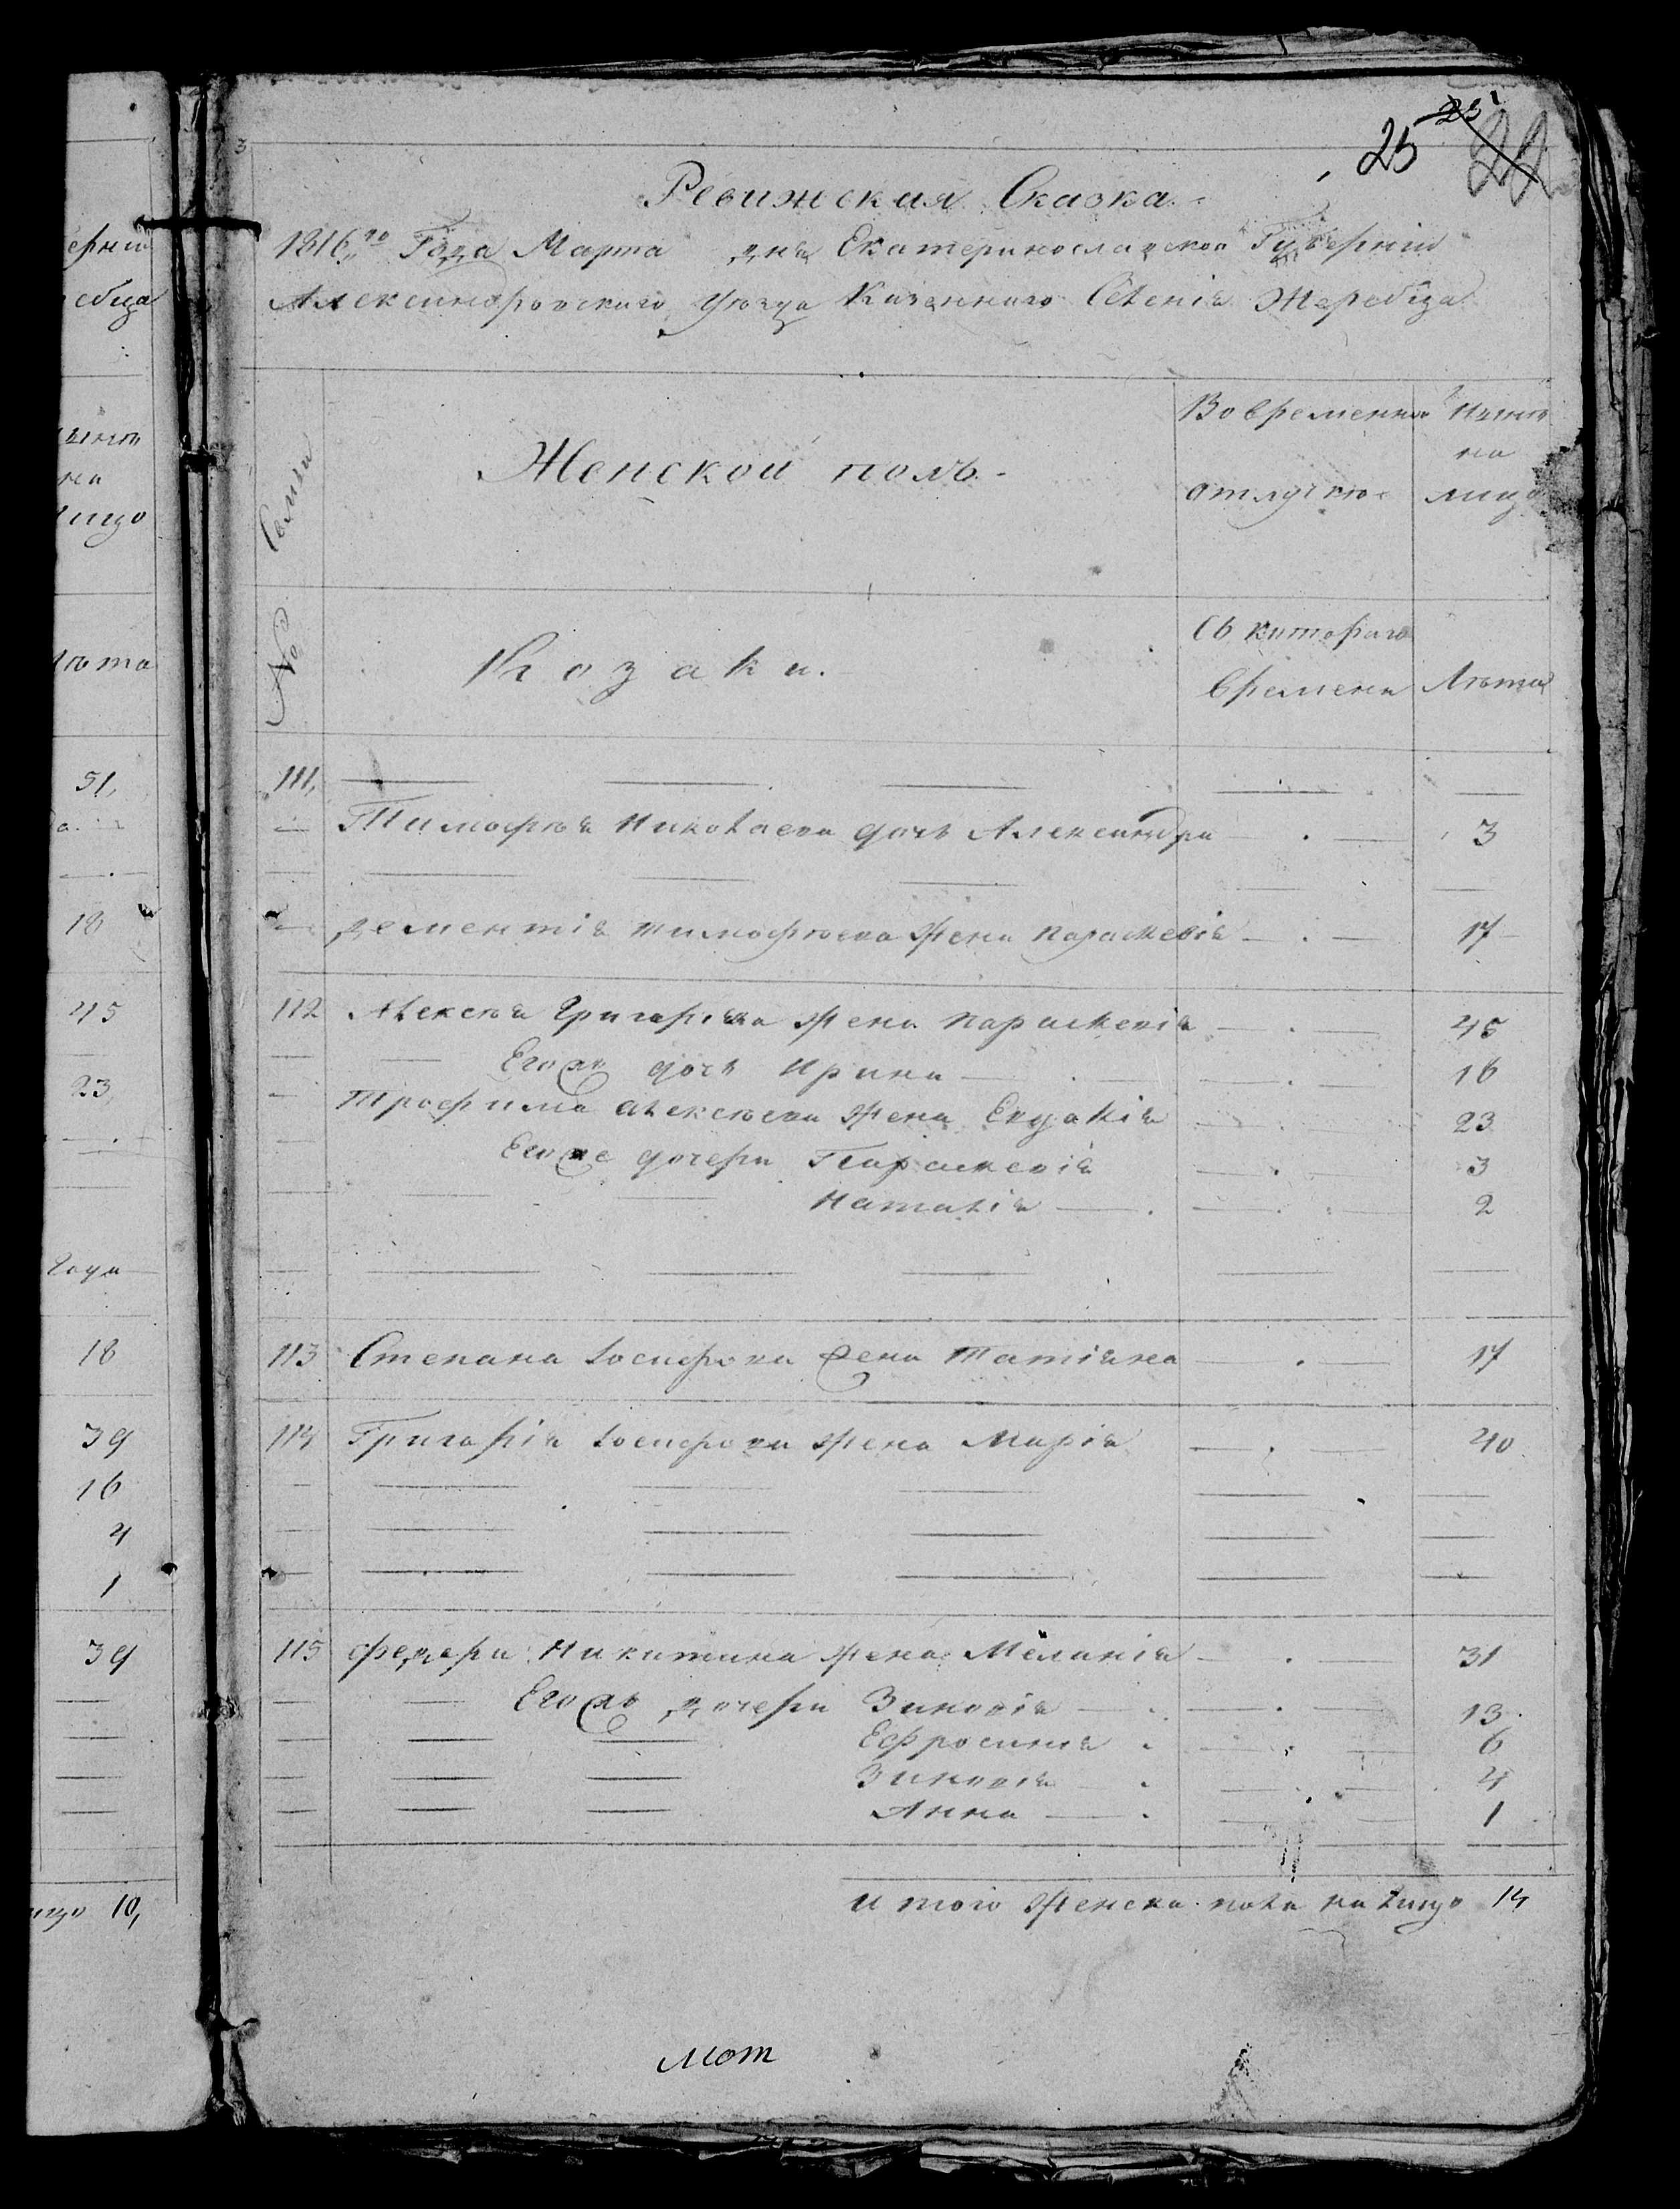 25 25 22
Ревижская Сказка
1816го Года Марта дня Екатеринославской Губернии
Александровского уезда Казенного Селенія Жеребца
Семьи
Женской полъ
Во временной
отлучке
Ныне
на
лицо
№
Козаки.
Съ котораго
времени
Лета
111,
Тимофея Николаева дочь Александра 3
Дементія Тимофеева жена Параскевія 17
112 Алексея Григорьева жена Параскевія 45
Егожъ дочь Ирина 16
Трофима Алексеева жена Евдокія 23
Егоже дочери Параскевія 3
Наталія 2
113 Степана Іосифова жена Татіяна 17
114 Григорія Іосифова жена Марія 40
115 Федора Никитина жена Меланія 31
Егожъ дочери Зиновія 13
Ефросинія 6
Зиновія 4
Анна 1
и того женска пола на лицо 14
мот
ерніи
ебца
ыне
на
лицо
лета
51,
18
45
23,
года
18
39
16
4
1
39
ицо 10,